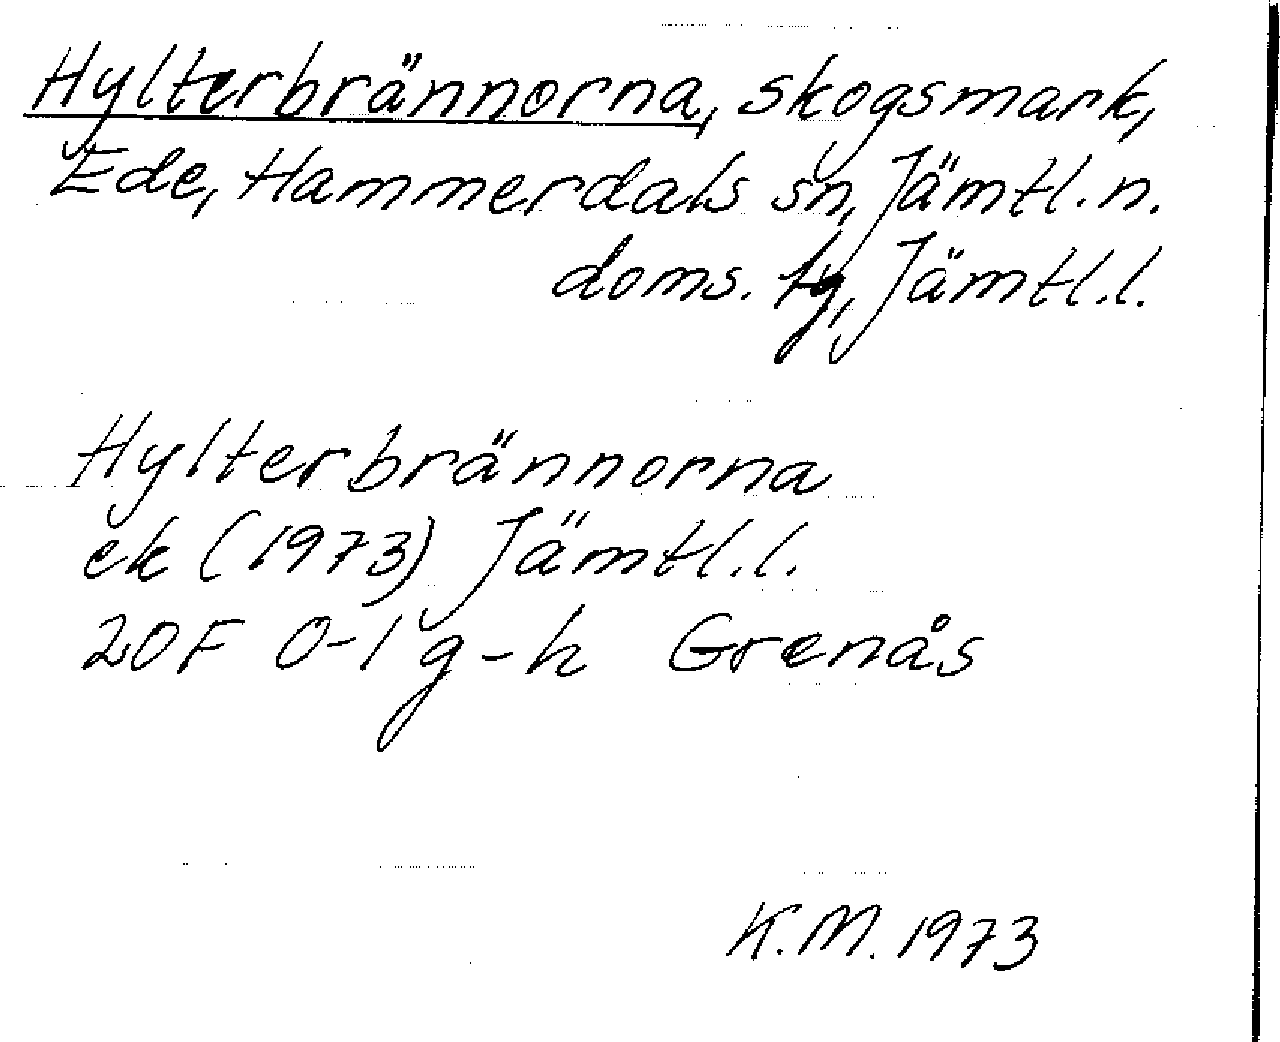 Hylterbrännorna, skogsmark,
Ede, Hammerdals sn, Jämtl. n.
doms. tg, Jämtl.l.
Hylterbrännorna
ek (1973) Jämtl.l.
20F 0-1 g-h Grenås
K.M. 1973